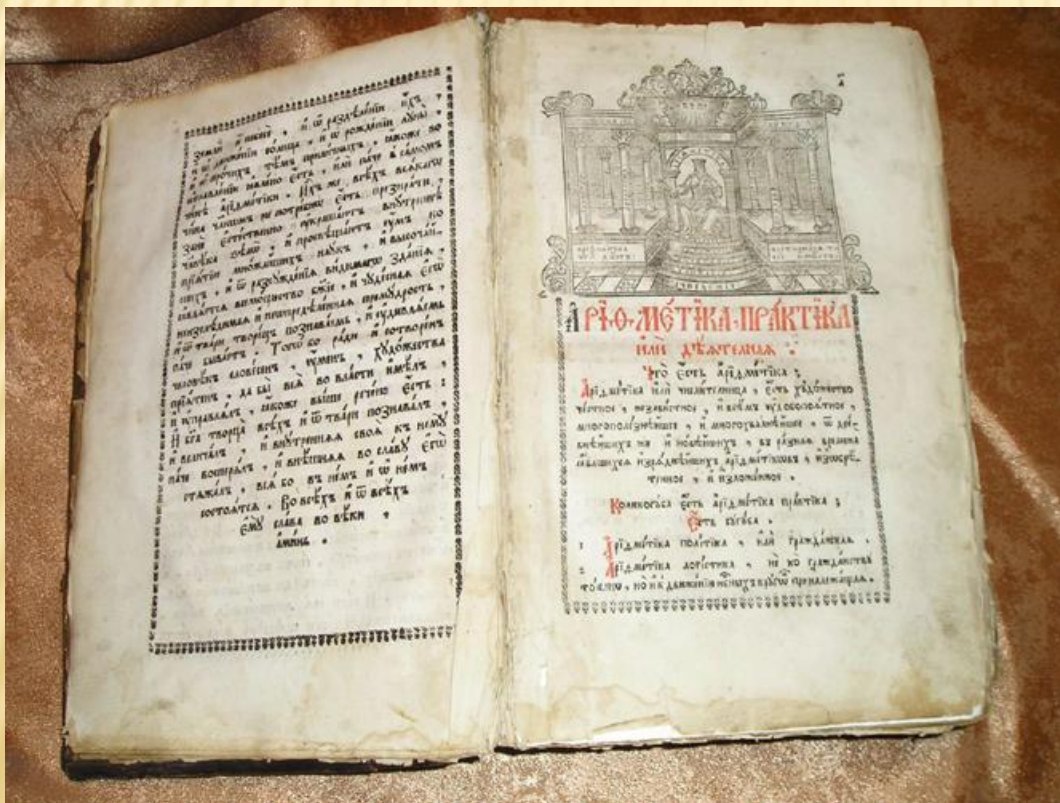 земли и небесѐ , и ѿ раздѣленїи ихъ ,
и ѿ движенїи солнца , и ѿ рожденїи луны ,
и ѿ прочихъ тѣмъ приличныхъ , якоже по
оглавленїи явлено есть , или паче в самомъ
чинѣ арїѳметїки . Ихъ же всѣхъ всякагѡ
чина чл҃вкѡмъ не потребно есть презирати ,
занѐ естественно украшаетъ внутренняго
чл҃вѣка всегѡ , и просвѣщаетъ умъ ко
прїятїю множайшихъ наукъ , и высочай-
шихъ , и ѿ разсужденїя видимагѡ зданїя ,
всемогущество бж҃їе , и чудесная егѡ
неизслѣдимая и неопредѣленная премудрость ,
и ѿ твари творецъ познаваемъ , и удивляемь
паче бываетъ . Тогѡ бо ради и сотворенъ
человѣкъ словесенъ , уменъ , художества
прїятен , да бы вся во власти имѣлъ ,
и управлялъ , якоже выше речено есть :
И бг҃а творца всѣхъ и ѿ твари познавалъ ,
и величалъ , и внутренняя своя къ нему
паче восперялъ , и внѣшняя во славу егѡ
стяжалъ , вся бо въ нем и ѿ нем
состоятся . Во всѣхъ и ѿ всѣхъ
ему слава во вѣки ,
аминь .
а҃
АРІѲМЕТІКА ПРАКТІКА
или дѣятелная .
Что есть арїѳметїка ;
Арїѳметїка или числителница , есть художество
честное , независтное , и всѣмъ удобопоятное ,
многополезнѣйшее , и многохвалнѣйшее , ѿ дре-
внѣйшихъ же и новѣйшихъ , въ разная времена
явльшихся изряднѣйшихъ арїѳметїковъ , изобрѣ-
тенное , и изложенное .
Коликогуба есть арїѳметїка практїка ;
Есть сугуба .
1 Арїѳметїка полїтїка , или гражданская .
2 Арїѳметїка логїстїка , не ко гражданству
токмѡ , но и къ движенїю нб҃сныхъ кругѡвъ принадлежащая .